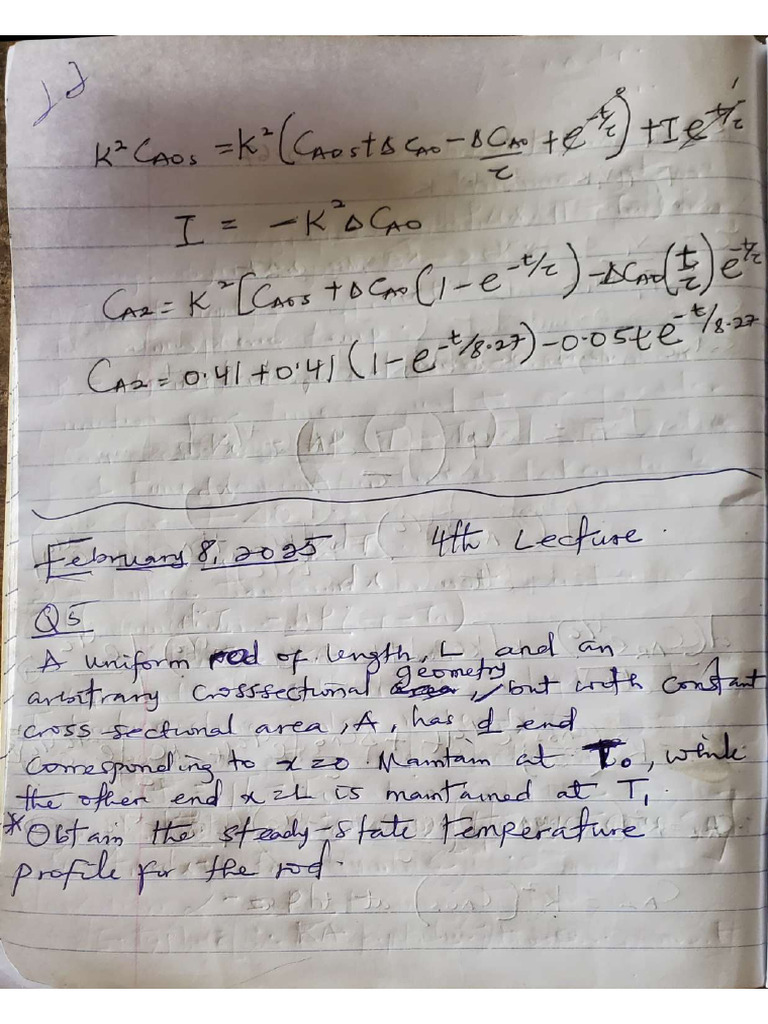 22
K² C_AOs = K² (C_AOs + Δ C_AO − ΔC_AO/τ + e^(-t/τ)) + I e^(-t/τ)
I = −K² Δ C_AO
C_A2 = K² [C_AOs + Δ C_AO (1 − e^(-t/τ)) − ΔC_AO (t/τ) e^(-t/τ)
C_A2 = 0.41 + 0.41 (1 − e^(-t/8.27)) − 0.05t e^(-t/8.27)
February 8, 2025 4th Lecture.
Q5
A uniform rod of length, L and an
arbitrary crosssectional geometry, but with constant
cross-sectional area, A, has d end
corresponding to x=0. Maintain at T₀, while
the other end x=L is maintained at T₁
*Obtain the steady-state temperature
profile for the rod.